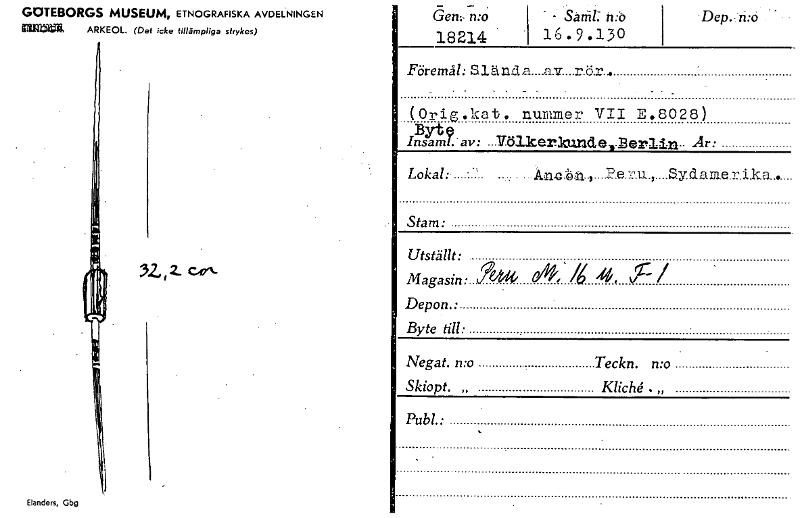 GÖTEBORGS MUSEUM, ETNOGRAFISKA AVDELNINGEN
ARKEOL. (Det icke tillämpliga strykes)
32,2 cm
Elanders, Gbg
Gen. n:o Saml. n:o Dep. n:o
18214 16.9.130
Föremål: Slända av rör.
(Orig.kat. nummer VII E.8028)
Byte
Insaml. av: Völkerkunde, Berlin År:
Lokal: Ancón, Peru, Sydamerika.
Stam:
Utställt:
Magasin: Peru M. 16 u. F-1
Depon.:
Byte till:
Negat. n:o Teckn. n:o
Skiopt. „ Kliché „
Publ.: